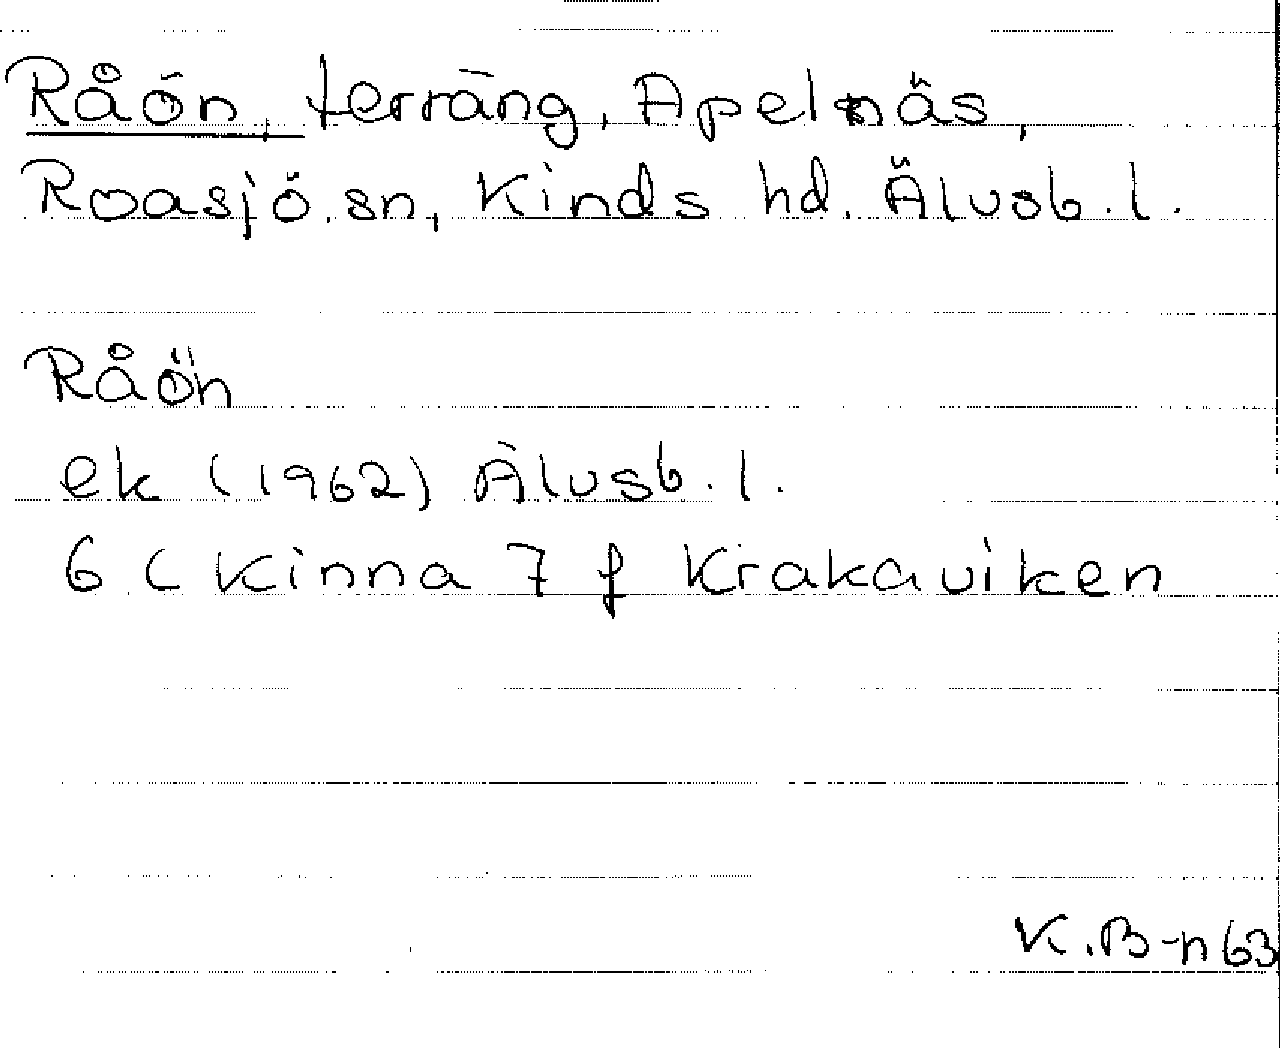 Råön, terräng, Apelnäs,
Roasjö sn, Kinds hd. Älvsb. l.
Råön
ek (1962) Älvsb. l.
6 C Kinna 7 f Krakaviken
K.B-n 63